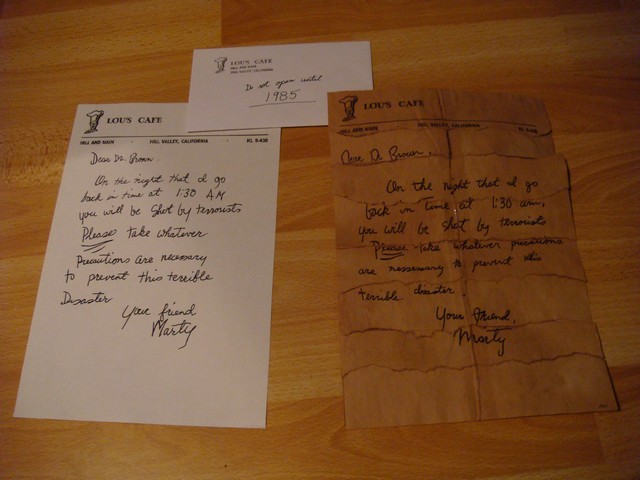 LOU'S CAFE
HILL AND MAIN
HILL VALLEY, CALIFORNIA
Do not open until
1985
LOU'S CAFE
HILL AND MAIN HILL VALLEY, CALIFORNIA KL 5-438
Dear Dr. Brown.
On the night that I go
back in time at 1:30 AM
you will be shot by terrorists
Please take whatever
Precautions are necessary
to prevent this terrible
Disaster
Your friend
Marty
LOU'S CAFE
HILL AND MAIN HILL VALLEY, CALIFORNIA KL 5-438
Dear Dr. Brown,
On the night that I go
back in time at 1:30 am,
you will be shot by terrorists
Please take whatever precautions
are nessesary to prevent this
terrible disaster.
Your friend,
Marty